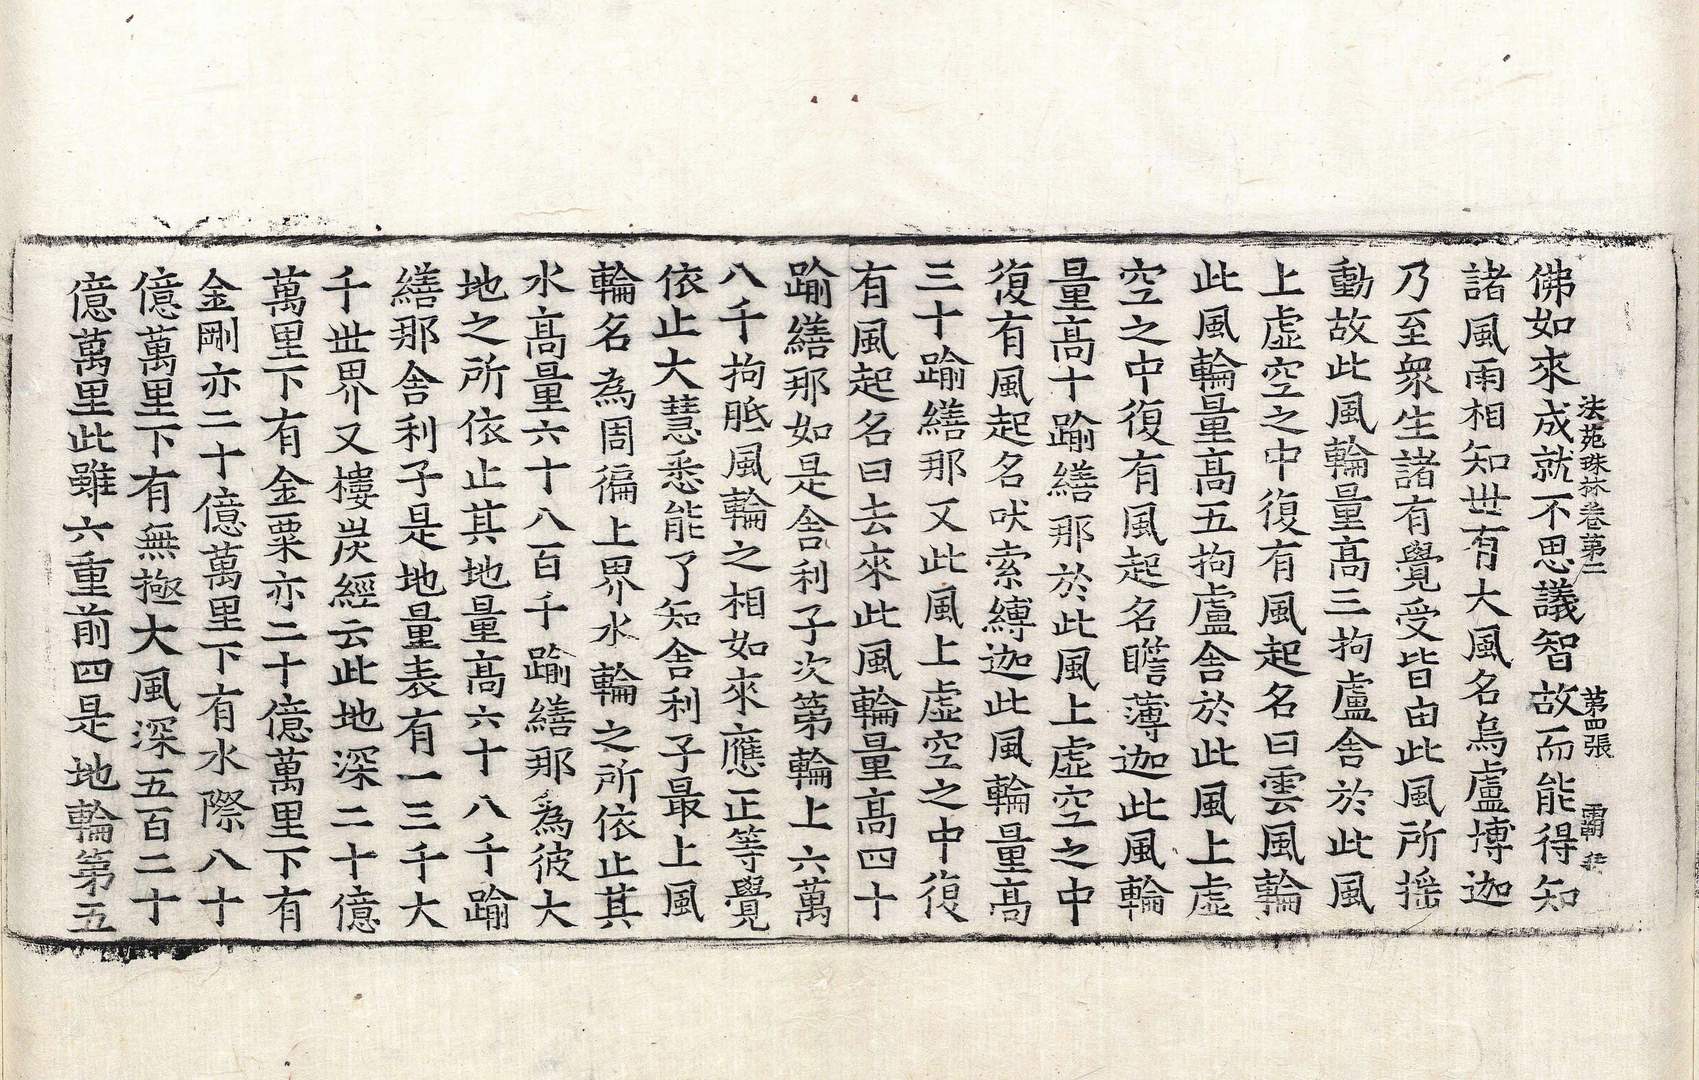 法苑珠林卷第二 第四張 覇
佛如來成就不思議智故而能得知
諸風雨相知世有大風名烏盧博迦
乃至衆生諸有覺受皆由此風所揺
動故此風輪量高三拘盧舍於此風
上虛空之中復有風起名曰雲風輪
此風輪量高五拘盧舍於此風上虛
空之中復有風起名瞻薄迦此風輪
量高十踰繕那於此風上虛空之中
復有風起名吠索縛迦此風輪量高
三十踰繕那又此風上虛空之中復
有風起名曰去來此風輪量高四十
踰繕那如是舍利子次第輪上六萬
八千拘胝風輪之相如來應正等覺
依止大慧悉能了知舍利子最上風
輪名為周徧上界水輪之所依止其
水高量六十八百千踰繕那為彼大
地之所依止其地量高六十八千踰
繕那舍利子是地量表有一三千大
千世界又樓炭經云此地深二十億
萬里下有金粟亦二十億萬里下有
金剛亦二十億萬里下有水際八十
億萬里下有無極大風深五百二十
億萬里此雖六重前四是地輪第五